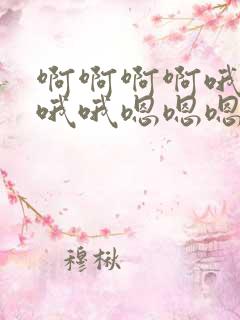 啊啊啊啊哦
哦哦嗯嗯嗯
穆楸